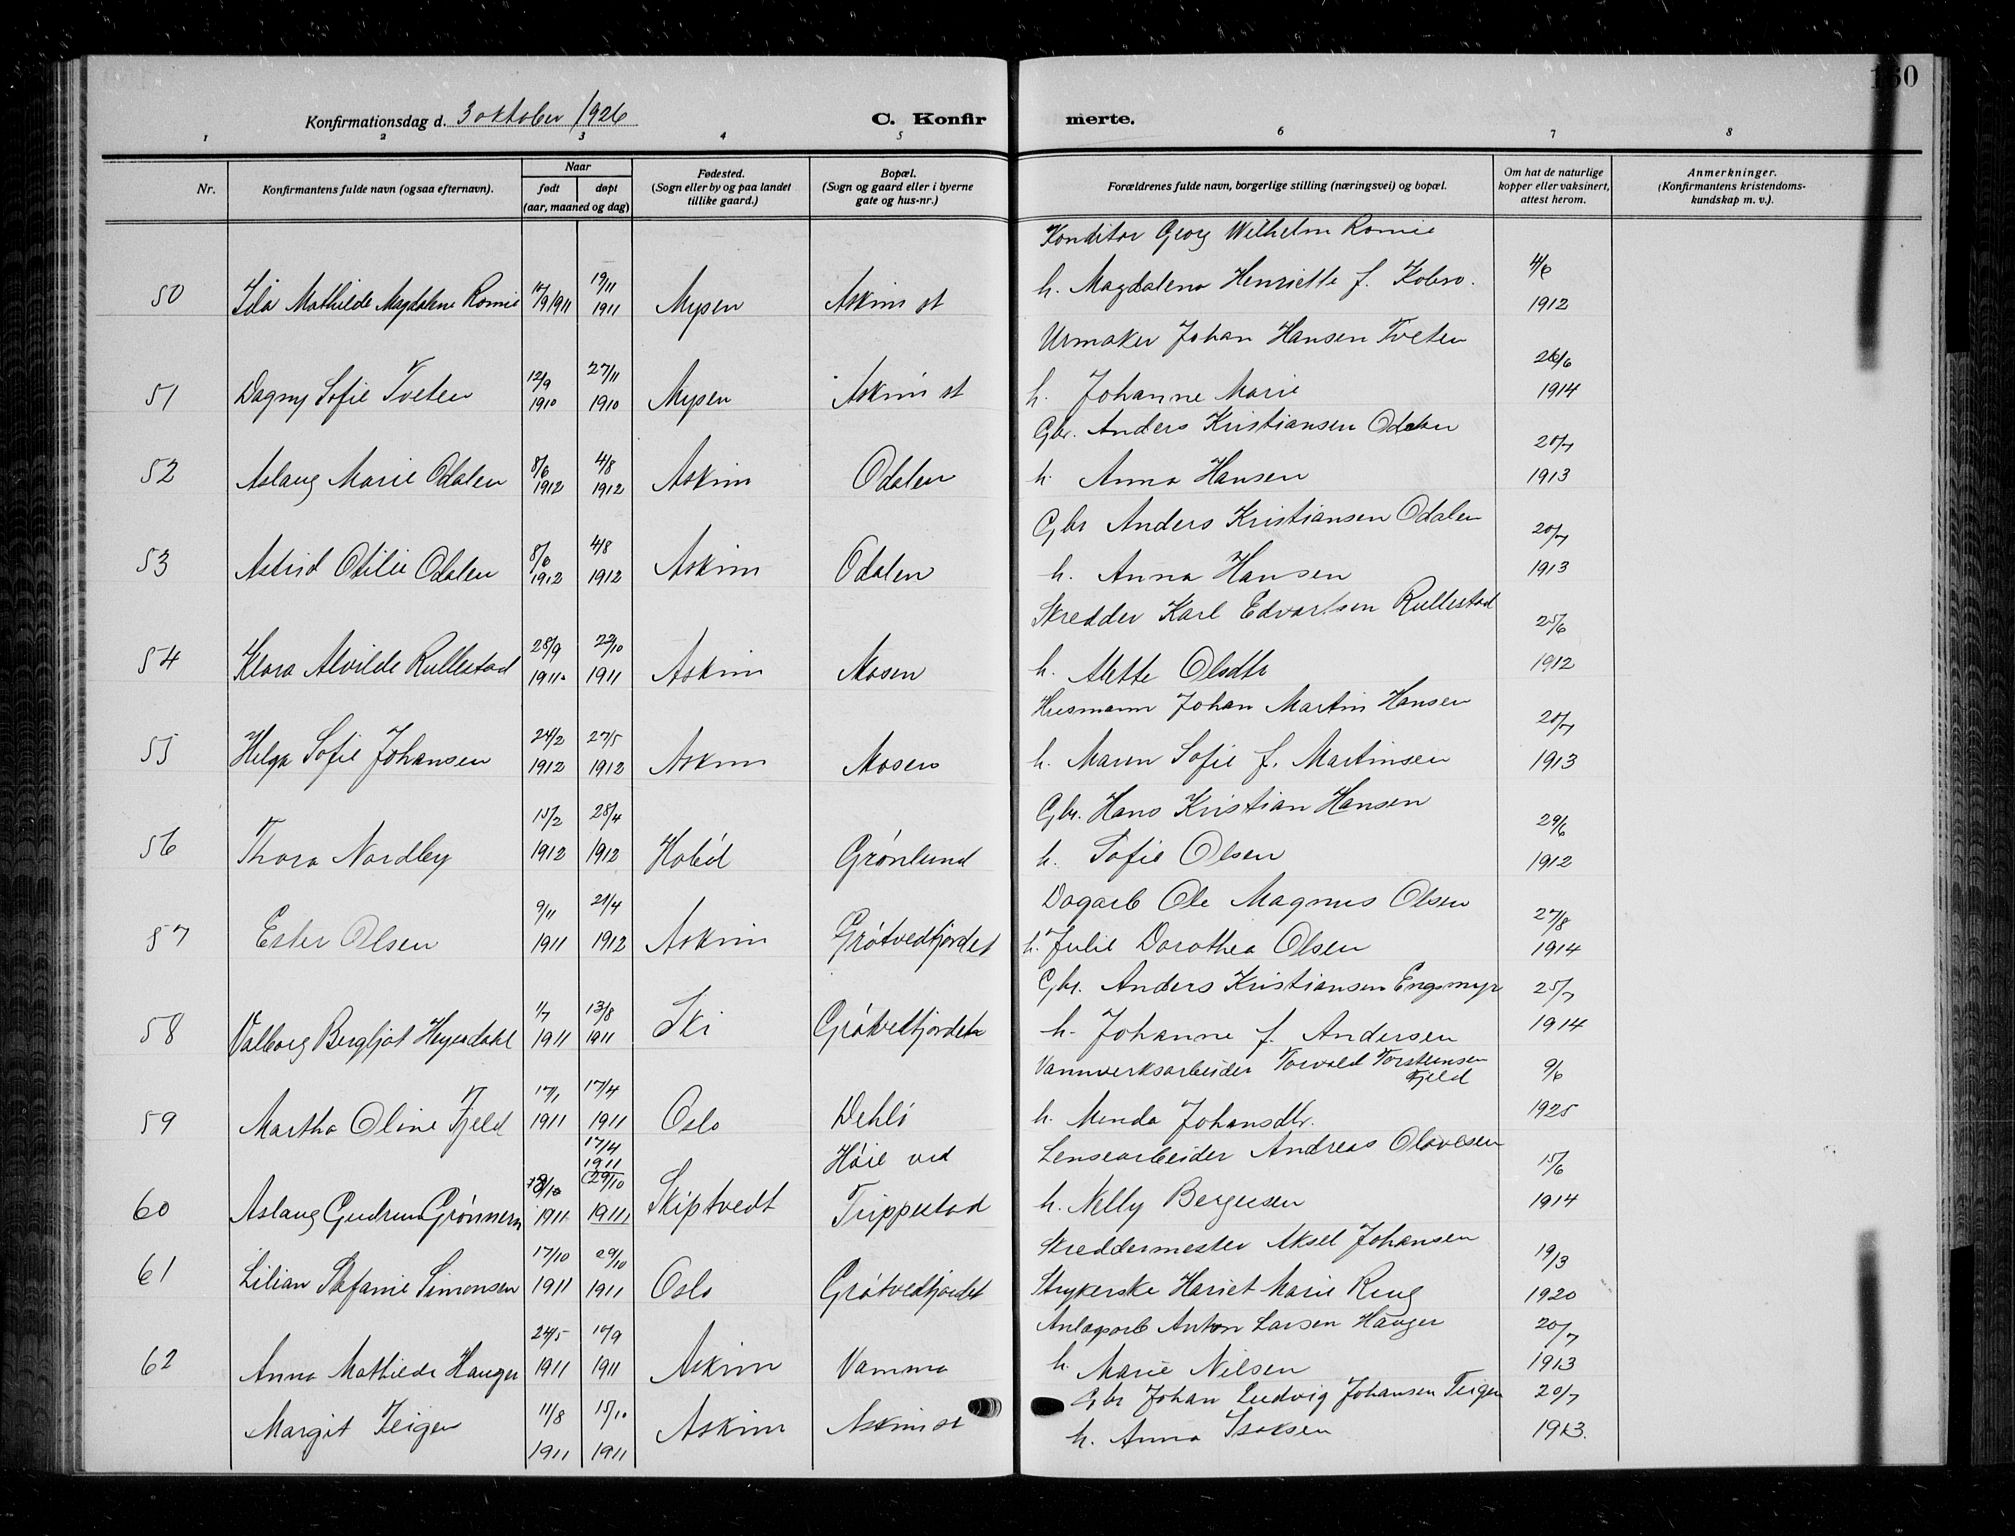 160
Konfirmationsdag d. 3 oktober 1926
C. Konfirmerte.
1 2 3 4 5 6 7 8
Nr.
Konfirmantens fulde navn (ogsaa efternavn).
Naar
født
døpt
(aar, maaned og dag)
Fødested.
(Sogn eller by og paa landet
tillike gaard.)
Bopæl.
(Sogn og gaard eller i byerne
gate og hus-nr.)
Forældrenes fulde navn, borgerlige stilling (næringsvei) og bopæl.
Om hat de naturlige
kopper eller vaksinert,
attest herom.
Anmerkninger.
(Konfirmantens kristendoms-
kundskap m. v.).
Konditor Georg Wilhelm Romie
50 Ida Mathilde Magdalene Romie 1911 19/11 1911 Mysen Askim st h. Magdalena Henriette f. Kobro. 4/6 1912
Urmaker Johan Hansen Tveten
51 Dagny Sofie Tveten 12/9 1910 27/11 1910 Mysen Askim st h. Johanne Marie 26/6 1914
Gbr. Anders Kristiansen Odalen
52 Aslaug Marie Odalen 8/6 1912 4/8 1912 Askim Odalen h. Anna Hansen 20/7 1913
Gbr Anders Kristiansen Odalen
53 Astrid Otilie Odalen 8/6 1912 4/8 1912 Askim Odalen h. Anna Hansen 20/7 1913
Skredder Karl Edvartsen Rullestad
54 Klara Alvilde Rullestad 28/9 1911 22/10 1911 Askim Mosen h. Mette Olsdtr 25/6 1912
Husmann Johan Martin Hansen
55 Helga Sofie Johansen 24/2 1912 27/5 1912 Askim Mosen h. Maren Sofie f. Martinsen 20/7 1913
Gbr. Hans Kristian Hansen
56 Thora Nordby 15/2 1912 28/4 1912 Hobøl Grønlund h. Sofie Olsen 29/6 1912
Dagarb Ole Magnus Olsen
57 Ester Olsen 9/11 1911 21/4 1912 Askim Grøtvedtjordet h. Julie Dorothea Olsen 27/8 1914
Gbr. Anders Kristiansen Engsmyr
58 Valborg Bergljot Heyerdahl 1/7 1911 13/8 1911 Ski Grøtvedtjordet h. Johanne f. Andersen 25/7 1914
Vannverksarbeider Torvald Torsteinsen Fjeld
59 Martha Oline Fjeld 17/1 1911 17/4 1911 Oslo Dehli h. Menda Johansdtr. 9/6 1925
17/4 1911 Høie ved Lensearbeider Andreas Olavesen
60 Aslaug Gudrun Grønnern 1911 29/10 1911 Skiptvedt Trippestad h. Nelly Bergersen 15/6 1914
Skreddermester Aksel Johansen
61 Lilian Stefanie Simonsen 17/10 1911 29/10 1911 Oslo Grøtvedtjordet Strykerske Hariet Marie Ring 19/3 1920
Anlagsarb Anton Larsen Hauger
62 Anna Mathilde Hauger 24/5 1911 10/9 1911 Askim Vamma h. Marie Nilsen 20/7 1913
Gbr Johan Ludvig Johansen Teigen
Margit Teigen 11/8 1911 15/10 1911 Askim Askim st h. Anna Isaksen 20/7 1913.